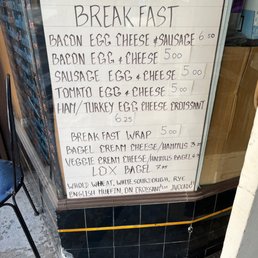 BREAKFAST
BACON EGG CHEESE & SAUSAGE 6.50
BACON EGG & CHEESE 5.00
SAUSAGE EGG & CHEESE 5.00
TOMATO EGG & CHEESE 5.00
HAM/TURKEY EGG CHEESE CROISSANT
6.25
BREAKFAST WRAP 5.00
BAGEL CREAM CHEESE/HUMMUS
VEGGIE CREAM CHEESE/HUMMUS BAGEL
LOX BAGEL 7.00
WHOLE WHEAT, WHITE, SOURDOUGH, RYE
ENGLISH MUFFIN, ON CROISSANT AVOCADO